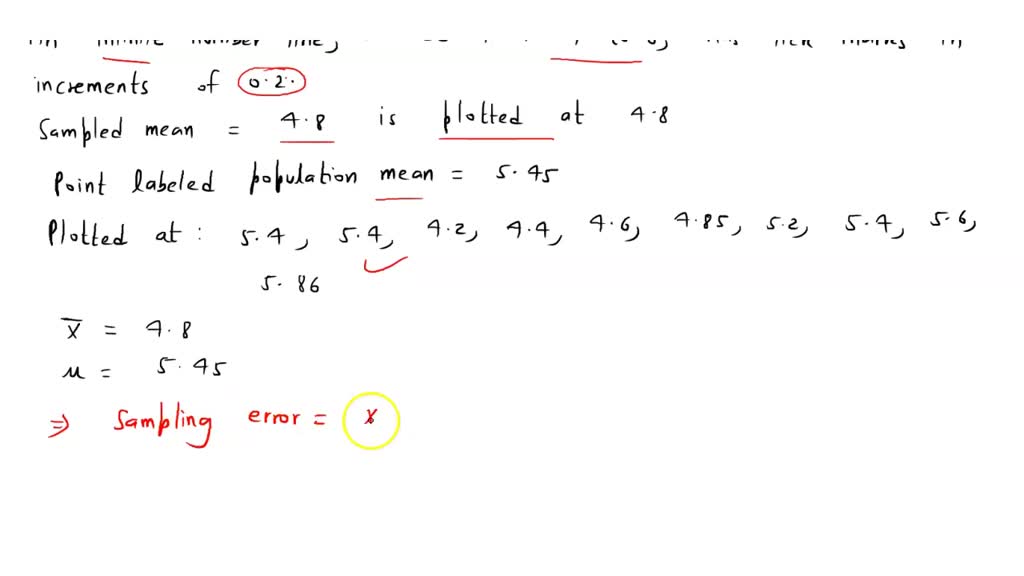 increments of 0.2.
Sampled mean = 4.8 is plotted at 4.8
Point labeled population mean = 5.45
Plotted at : 5.4, 5.4, 4.2, 4.4, 4.6, 4.85, 5.2, 5.4, 5.6,
5.86
x̄ = 4.8
μ = 5.45
⇒ Sampling error = x